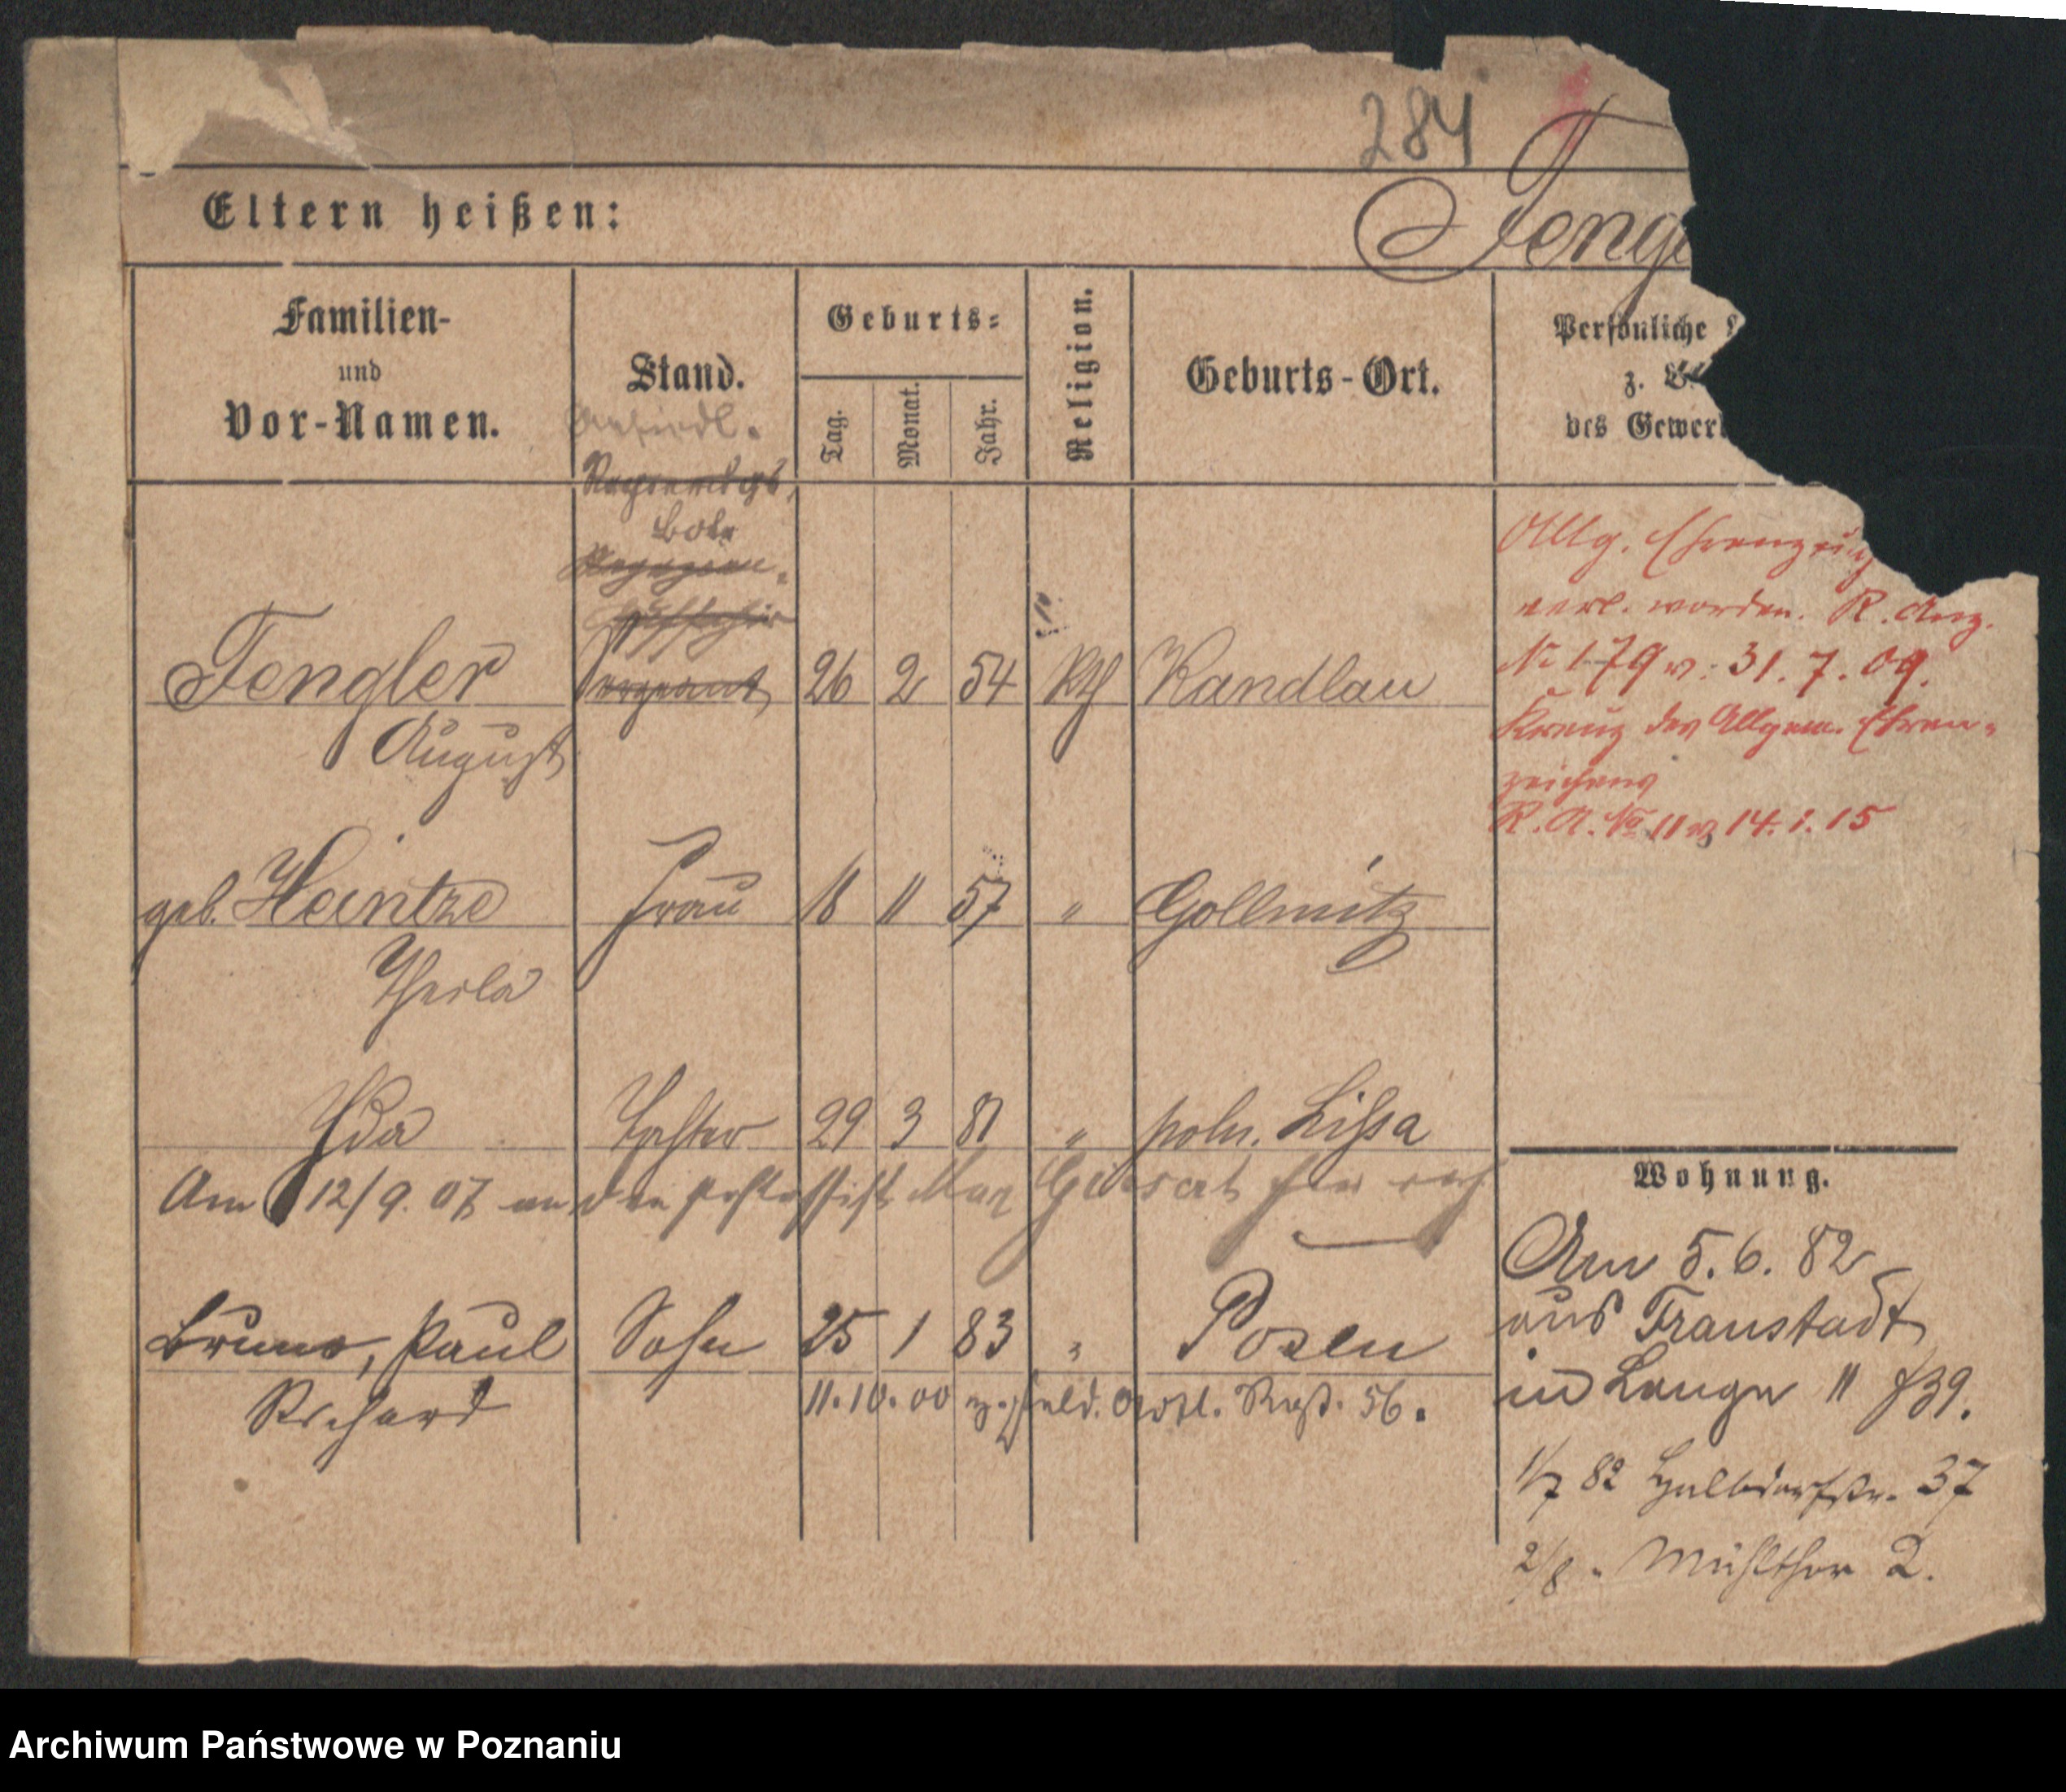 284
Eltern heißen:
Feng
Familien-
und
Vor-Namen.
Stand.
Geburts-
Tag.
Monat.
Jahr.
Religion.
Geburts-Ort.
Persönliche
z.
des Gewer
Bote
Fengler Sergeant 26 2 54 kth Kandlau
August
Allg. Ehrenzeich
verl. worden. R. Anz.
No 179 v. 31.7.09.
Kreuz des Allgem. Ehren-
zeichens
R. A. No 11 v. 14.1.15
geb. Heintze Frau 18 11 57 " Gollmitz
Ida Tochter 29 3 81 " poln. Lissa
Am 12/9. 07 an den
Bruno, Paul Sohn 25 1 83 " Posen
Richard
11.10.00 z. Feld. Artl. Regt. 56.
Wohnung.
Am 5.6.82
aus Fraustadt
in Lange 11
1/7 82 Halbdorfstr. 37
2/8 " Mühlthor 2.
Archiwum Państwowe w Poznaniu